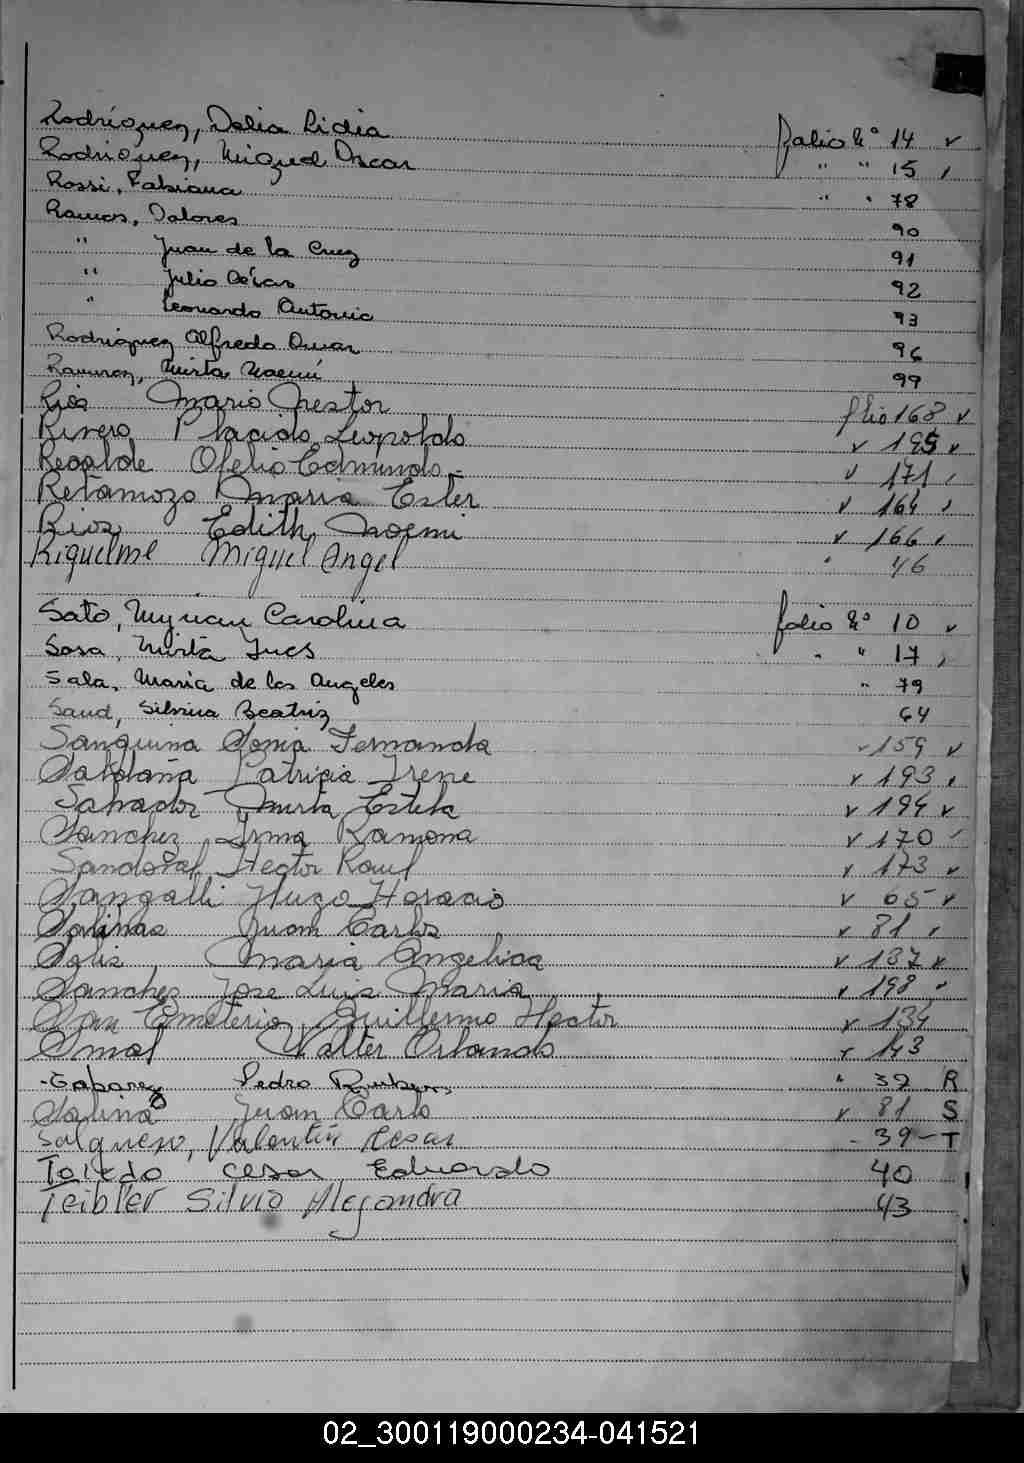 Rodríguez, Delia Lidia folio Nº 14 v
Rodriguez, Miguel Oscar " " 15 ,
Rossi, Fabiana " " 78
Ramos, Dolores 90
" Juan de la Cruz 91
" Julio César 92
" Leonardo Antonio 93
Rodriguez Alfredo Omar 96
Ramirez, Mirta Noemí 99
Ríos Mario Nestor flio 168 v
Rivero Placido Leopoldo v 195 v
Regalde Ofelio Edmundo - v 171 ,
Retamozo Maria Ester v 164 ,
Rios Edith Noemi v 166 ,
Riquelme Miguel Angel " 46
Soto, Myrian Carolina folio Nº 10 v
Sosa, Mirta Ines " " 17 ,
Sala, Maria de los Angeles " 79
Saud, Silvina Beatriz 64
Sanguina Sonia Fernanda v 159 v
Saldaña Patricia Irene v 193 ,
Salvador Mirta Estela v 194 v
Sanchez Irma Ramona v 170 ,
Sandoval Hector Raul v 173 v
Sangalli Hugo Horacio v 65 v
Salinas Juan Carlos v 81 ,
Solis Maria Angelica v 137 v
Sanchez Jose Luis Maria v 198 ,
San Emeterio Guillermo Hector v 134
Smal Walter Orlando v 143
- Taborez Pedro Ruben " 32 R
Salina Juan Carlo v 81 S
Salguero, Valentín Cesar - 39 - T
Toledo Cesar Eduardo 40
Teibler Silvio Alejandra 43
02_300119000234-041521